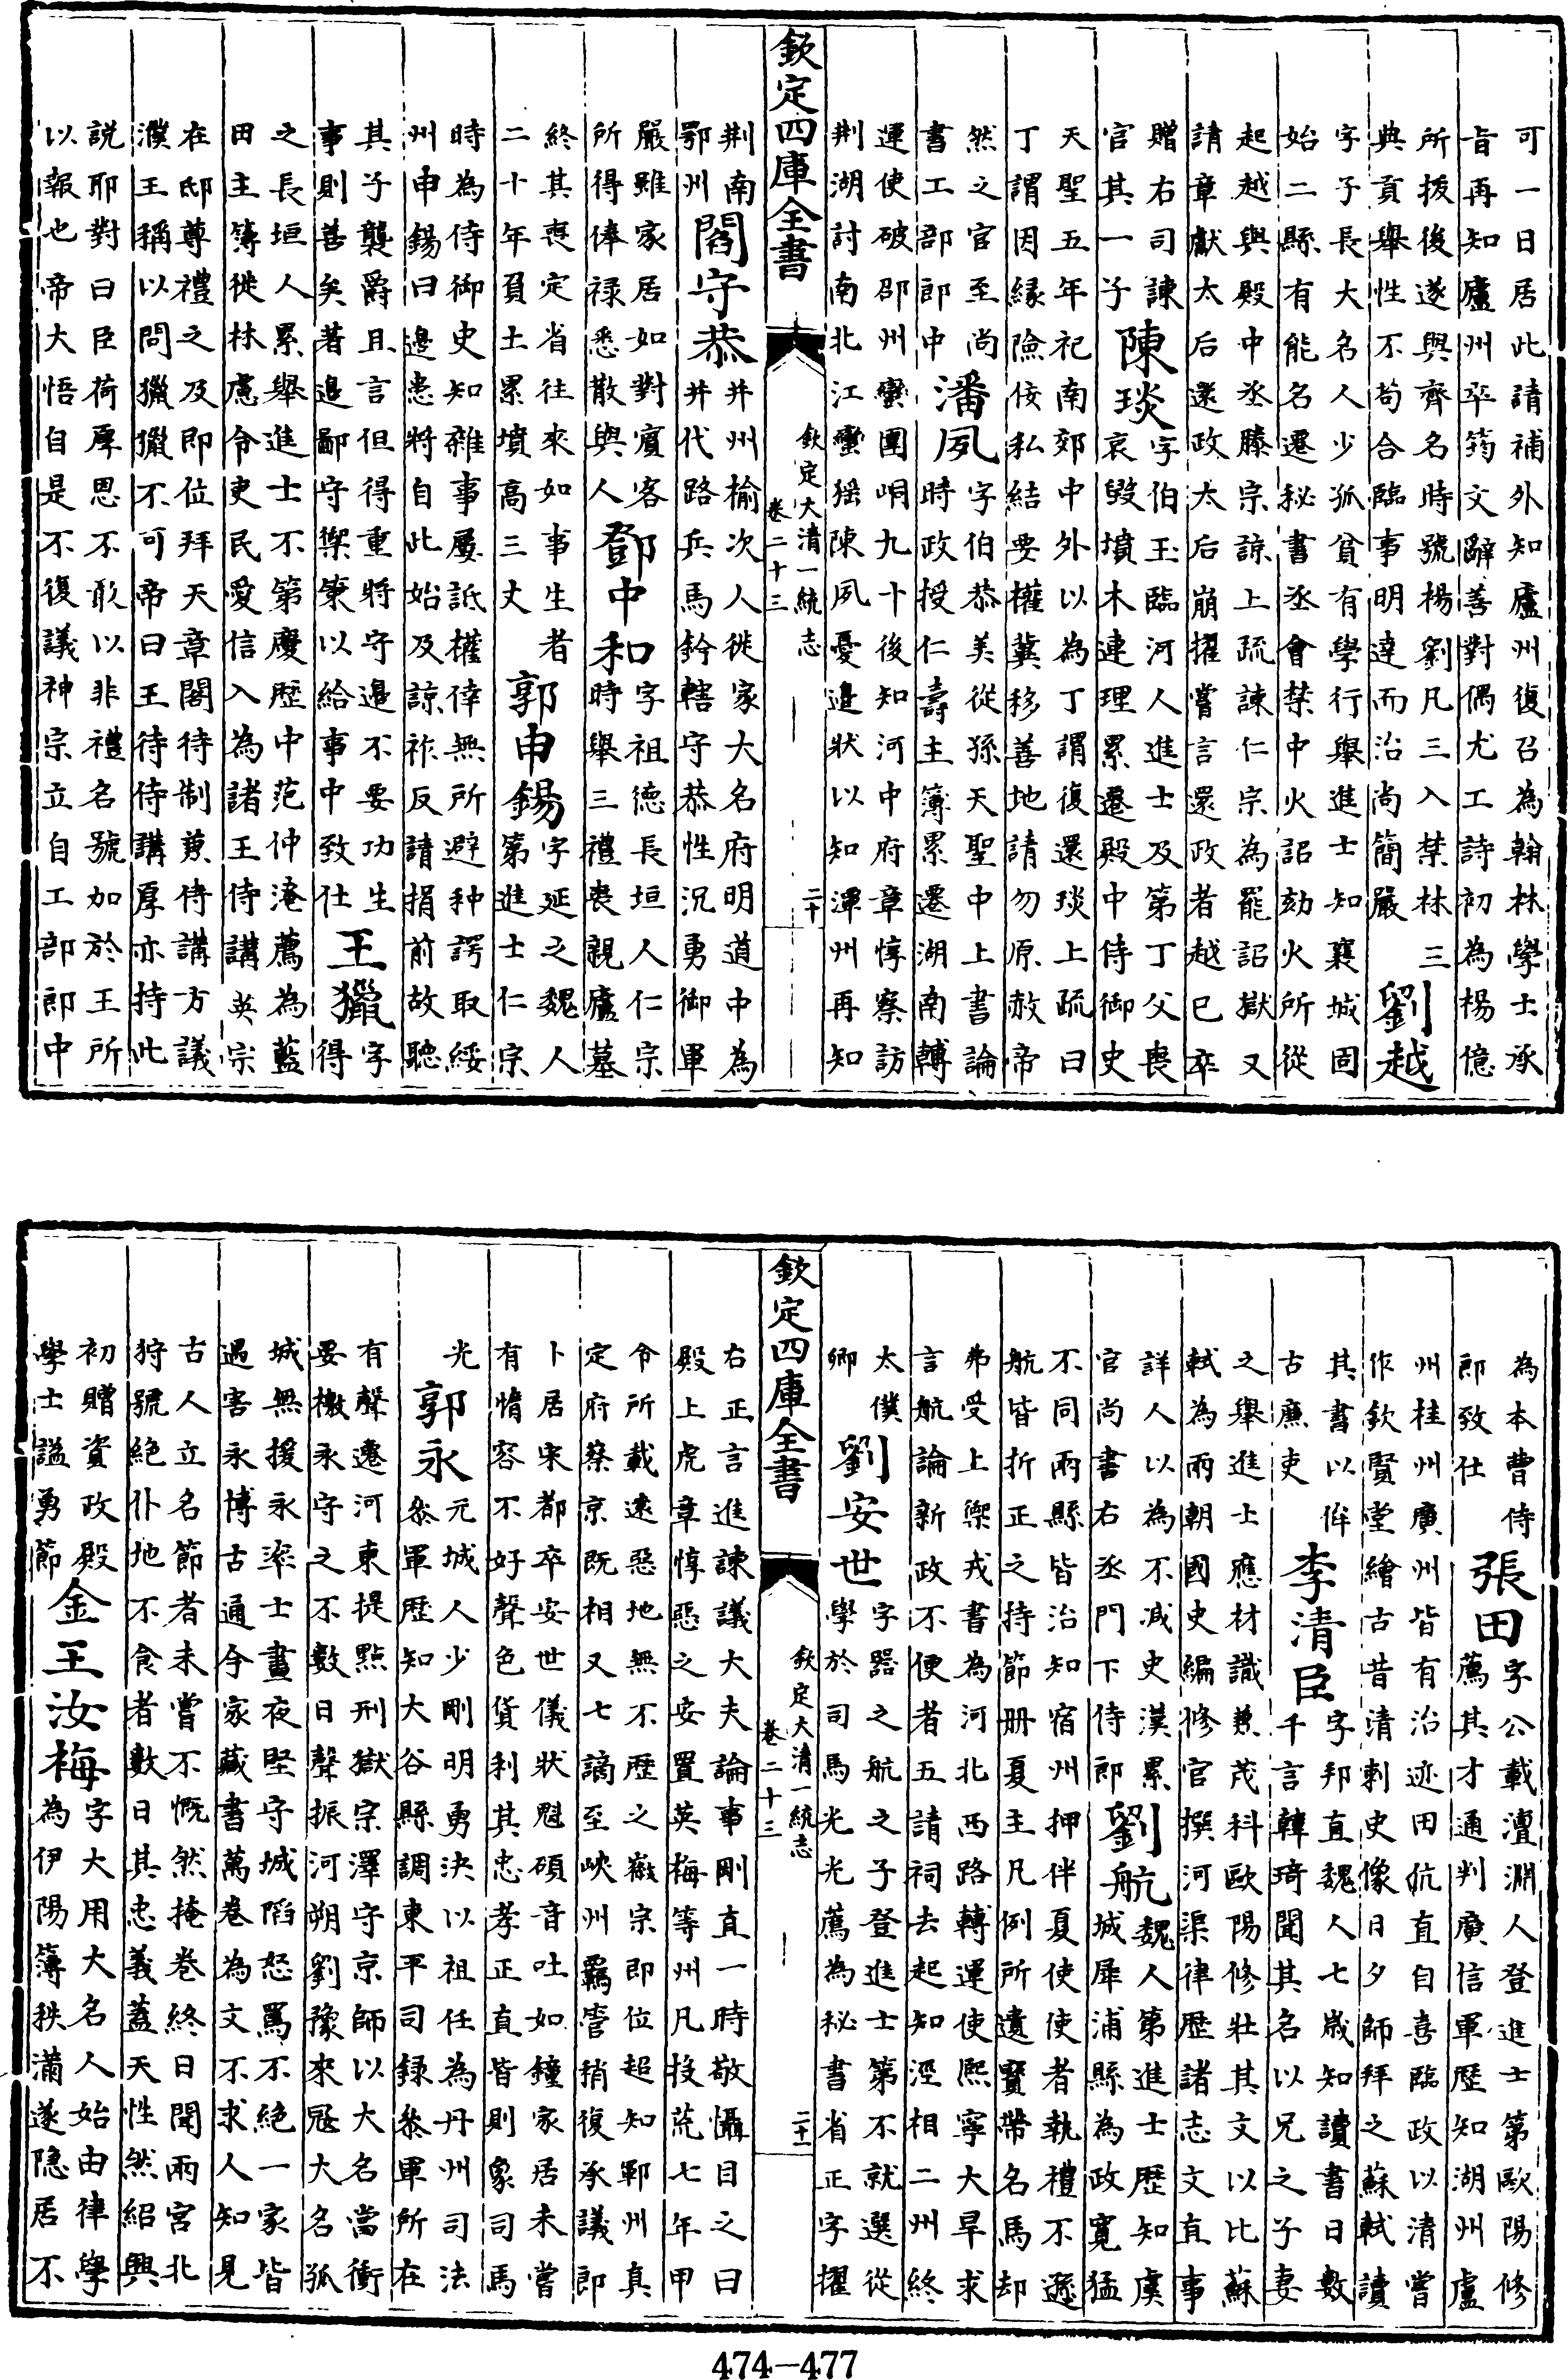 可一日居此請補外知廬州復召為翰林學士承
旨再知廬州卒筠文辭善對偶尤工詩初為楊億
所拔後遂與齊名時號楊劉凡三入禁林三
典貢舉性不苟合臨事明達而治尚簡嚴
劉越
字子長大名人少孤貧有學行舉進士知襄城固
始二縣有能名遷秘書丞會禁中火詔劾火所從
起越與殿中丞滕宗諒上疏諫仁宗為罷詔獄又
請章獻太后還政太后崩擢嘗言還政者越已卒
贈右司諫
官其一子
陳琰
字伯玉臨河人進士及第丁父喪
哀毀墳木連理累遷殿中侍御史
天聖五年祀南郊中外以為丁謂復還琰上疏曰
丁謂因緣險佞私結要權冀移善地請勿原赦帝
然之官至尚
書工部郎中
潘夙
字伯恭美從孫天聖中上書論
時政授仁壽主簿累遷湖南轉
運使破邵州蠻團峒九十後知河中府章惇察訪
荆湖討南北江蠻猺陳夙憂邊狀以知潭州再知
欽定四庫全書
欽定大清一統志
卷二十三
二十
荆南
鄂州
閻守恭
并州榆次人徙家大名府明道中為
并代路兵馬鈐轄守恭性沉勇御軍
嚴雖家居如對賓客
所得俸禄悉散與人
鄧中和
字祖德長垣人仁宗
時舉三禮喪親廬墓
終其喪定省往來如事生者
二十年負土累墳高三丈
郭申錫
字延之魏人
第進士仁宗
時為侍御史知雜事屢詆權倖無所避种諤取綏
州申錫曰邊患將自此始及諒祚反請捐前故聽
其子襲爵且言但得重將守邊不要功生
事則善矣著邊鄙守禦策以給事中致仕
王獵
字
得
之長垣人累舉進士不第慶歴中范仲淹薦為藍
田主簿徙林慮令吏民愛信入為諸王侍講英宗
在邸尊禮之及即位拜天章閣待制兼侍講方議
濮王稱以問獵獵不可帝曰王待侍講厚亦持此
説耶對曰臣荷厚恩不敢以非禮名號加於王所
以報也帝大悟自是不復議神宗立自工部郎中
為本曹侍
郎致仕
張田
字公載澶淵人登進士第歐陽修
薦其才通判廣信軍歴知湖州廬
州桂州廣州皆有治迹田伉直自喜臨政以清嘗
作欽賢堂繪古昔清刺史像日夕師拜之蘇軾讀
其書以侔
古廉吏
李清臣
字邦直魏人七歲知讀書日數
千言韓琦聞其名以兄之子妻
之舉進士應材識兼茂科歐陽修壯其文以比蘇
軾為兩朝國史編修官撰河渠律歴諸志文直事
詳人以為不減史漢累
官尚書右丞門下侍郎
劉航
魏人第進士歴知虞
城犀浦縣為政寬猛
不同兩縣皆治知宿州押伴夏使使者執禮不遜
航皆折正之持節册夏主凡例所遺寶帶名馬却
弗受上禦戎書為河北西路轉運使熙寧大旱求
言航論新政不便者五請祠去起知涇相二州終
太僕
卿
劉安世
字器之航之子登進士第不就選從
學於司馬光光薦為秘書省正字擢
欽定四庫全書
欽定大清一統志
卷二十三
二十一
右正言進諫議大夫論事剛直一時敬懾目之曰
殿上虎章惇惡之安置英梅等州凡投荒七年甲
令所載遠惡地無不歴之徽宗即位起知鄆州真
定府蔡京既相又七謫至峽州羈管稍復承議郎
卜居宋都卒安世儀狀魁碩音吐如鐘家居未嘗
有惰容不好聲色貨利其忠孝正直皆則象司馬
光
郭永
元城人少剛明勇決以祖任為丹州司法
叅軍歴知大谷縣調東平司録叅軍所在
有聲遷河東提點刑獄宗澤守京師以大名當衝
要檄永守之不數日聲振河朔劉豫來冦大名孤
城無援永率士晝夜堅守城䧟怒罵不絶一家皆
遇害永博古通今家藏書萬卷為文不求人知見
古人立名節者未嘗不慨然掩卷終日聞兩宮北
狩號絶仆地不食者數日其忠義蓋天性然紹興
初贈資政殿
學士諡勇節
金王汝梅
字大用大名人始由律學
為伊陽簿秩滿遂隐居不
474-477